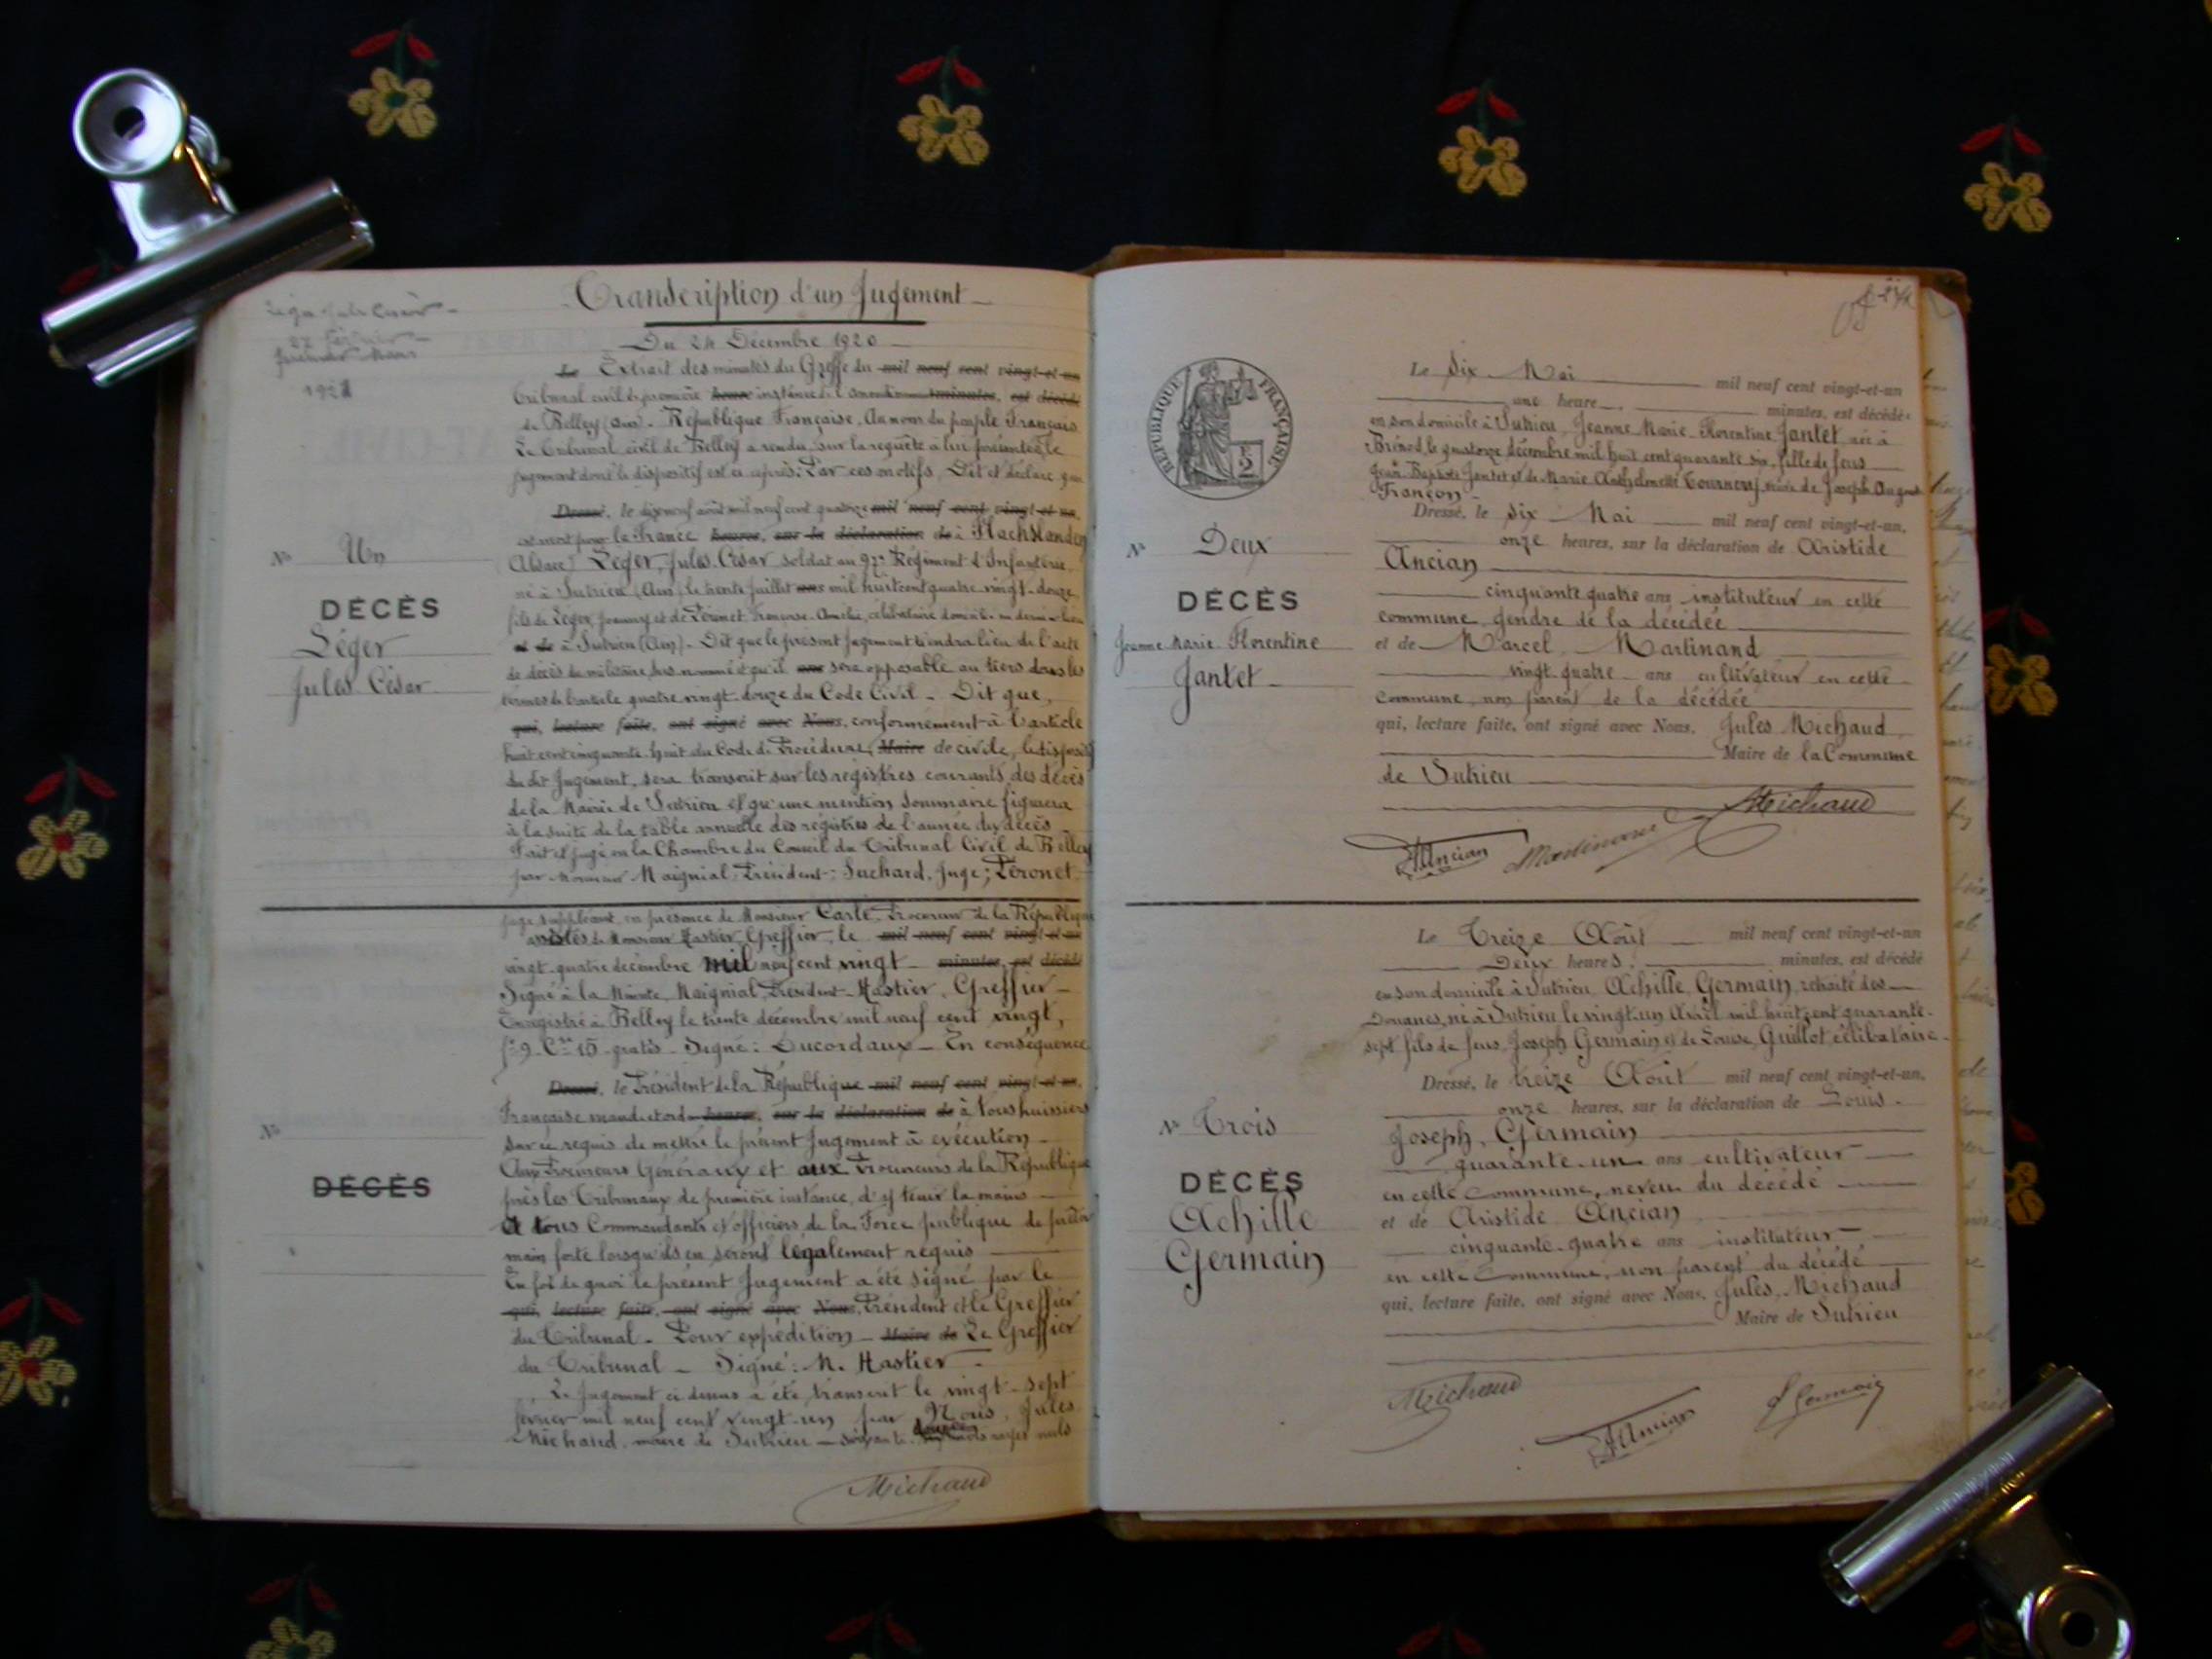 1921
Transcription d'un Jugement
Du 24 Décembre 1920
Le Extrait des minutes du Greffe du mil neuf cent vingt-et-un
Tribunal civil de première heure instance de l' minutes, est décédé
de Belley (Ain). République Française, Au nom du peuple Français
Le Tribunal civil de Belley a rendu sur la requête à lui présentée, le
jugement dont le dispositif est ci après: Par ces motifs, Dit et déclare que
Dressé, le dix neuf août mil neuf cent quatorze mil neuf cent vingt-et-un,
est mort pour la France heures, sur la déclaration de à Flachslanden
Alsace) Léger, Jules César soldat au 97e Régiment d'Infanterie
né à Sutrieu (Ain) le trente juillet ans mil huit cent quatre vingt-douze
fils de Léger, et de Péronet, Françoise Amélie, célibataire domicilié en dernier lieu
et de à Sutrieu (Ain) - Dit que le présent jugement tiendra lieu de l'acte
de décès du militaire sus nommé et qu'il ans sera opposable au tiers dans les
termes de l'article quatre vingt-douze du Code Civil - Dit que,
qui, lecture faite, ont signé avec Nous, conformément à l'article
huit cent cinquante-huit du Code de Procédure, Maire de civile, le dispositif
du dit Jugement, sera transcrit sur les registres courants des décès
de la Mairie de Sutrieu et qu'une mention sommaire figurera
à la suite de la table annuelle des registres de l'année du décès
Fait et jugé en la Chambre du Conseil du Tribunal Civil de Belley
par Monsieur Maignial, Président; Suchard, Juge; Péronet
N° Un
DÉCÈS
Léger
Jules César
juge suppléant, en présence de Monsieur Carle, Procureur de la République
assistés de Monsieur Hastier, Greffier, le mil neuf cent vingt-et-un
vingt-quatre décembre mil neuf cent vingt - minutes, est décédé
Signé à la Minute, Maignial, Président - Hastier, Greffier -
Enregistré à Belley le trente décembre mil neuf cent vingt,
f° 9 Cse 15 gratis - Signé: Ducordaux - En conséquence
Dressé, le Président de la République mil neuf cent vingt-et-un,
Française mande et ordonne heures, sur la déclaration de à tous huissiers
sur ce requis de mettre le présent Jugement à exécution -
Aux Procureurs Généraux et aux Procureurs de la République
près les Tribunaux de première instance, d'y tenir la main -
A tous Commandants et officiers de la Force publique de prêter
main forte lorsqu'ils en seront légalement requis
En foi de quoi le présent Jugement a été signé par le
qui, lecture faite, ont signé avec Nous, Président et le Greffier
du Tribunal - Pour expédition - Maire de Le Greffier
du Tribunal - Signé: M. Hastier -
Le Jugement ci dessus a été transcrit le vingt-sept
février mil neuf cent vingt-un par Nous, Jules
Michaud, maire de Sutrieu - soixante mots rayés nuls
N°
DÉCÈS
Michaud
RÉPUBLIQUE FRANÇAISE
2
Le Six Mai mil neuf cent vingt-et-un
une heure minutes, est décédée
en son domicile à Sutrieu, Jeanne Marie Florentine Jantet née à
Brénod le quatorze décembre mil huit cent quarante six, fille de feus
Jean Baptiste Jantet et de Marie Anthelmette Tournery, veuve de Joseph August
Françon -
Dressé, le Six Mai mil neuf cent vingt-et-un,
onze heures, sur la déclaration de Aristide
Ancian
cinquante quatre ans instituteur en cette
commune, gendre de la décédée
et de Marcel Martinand
vingt quatre ans cultivateur en cette
commune, non parent de la décédée
qui, lecture faite, ont signé avec Nous, Jules Michaud
Maire de la Commune
de Sutrieu
N° Deux
DÉCÈS
Jeanne Marie Florentine
Jantet
AAncian Martinand Michaud
Le Treize Août mil neuf cent vingt-et-un
Deux heures, minutes, est décédé
en son domicile à Sutrieu, Achille Germain, retraité des
Douanes, né à Sutrieu le vingt un Avril mil huit cent quarante-
sept fils de feus Joseph Germain et de Louise Guillot célibataire
Dressé, le treize Août mil neuf cent vingt-et-un,
onze heures, sur la déclaration de Louis
Joseph Germain
quarante-un ans cultivateur
en cette commune, neveu du décédé
et de Aristide Ancian
cinquante-quatre ans instituteur
en cette commune, non parent du décédé
qui, lecture faite, ont signé avec Nous, Jules Michaud
Maire de Sutrieu
N° Trois
DÉCÈS
Achille
Germain
Michaud AAncian L Germain